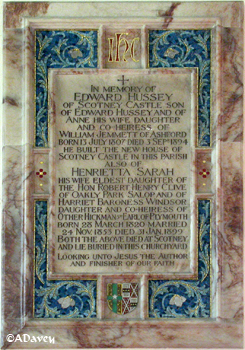 IHC
IN MEMORY OF
EDWARD HUSSEY
OF SCOTNEY CASTLE SON
OF EDWARD HUSSEY AND OF
ANNE HIS WIFE DAUGHTER
AND CO-HEIRESS OF
WILLIAM JEMMETT OF ASHFORD
BORN 13 JULY 1807 DIED 3 SEPT 1894
HE BUILT THE NEW HOUSE OF
SCOTNEY CASTLE IN THIS PARISH
ALSO OF
HENRIETTA SARAH
HIS WIFE ELDEST DAUGHTER OF
THE HON ROBERT HENRY CLIVE
OF OAKLY PARK SALOP AND OF
HARRIET BARONESS WINDSOR
DAUGHTER AND CO-HEIRESS OF
OTHER HICKMAN EARL OF PLYMOUTH
BORN 28 MARCH 1820 MARRIED
24 NOV 1853 DIED 31 JAN 1899
BOTH THE ABOVE DIED AT SCOTNEY
AND LIE BURIED IN THIS CHURCHYARD
LOOKING UNTO JESUS THE AUTHOR
AND FINISHER OF OUR FAITH
©ADavey